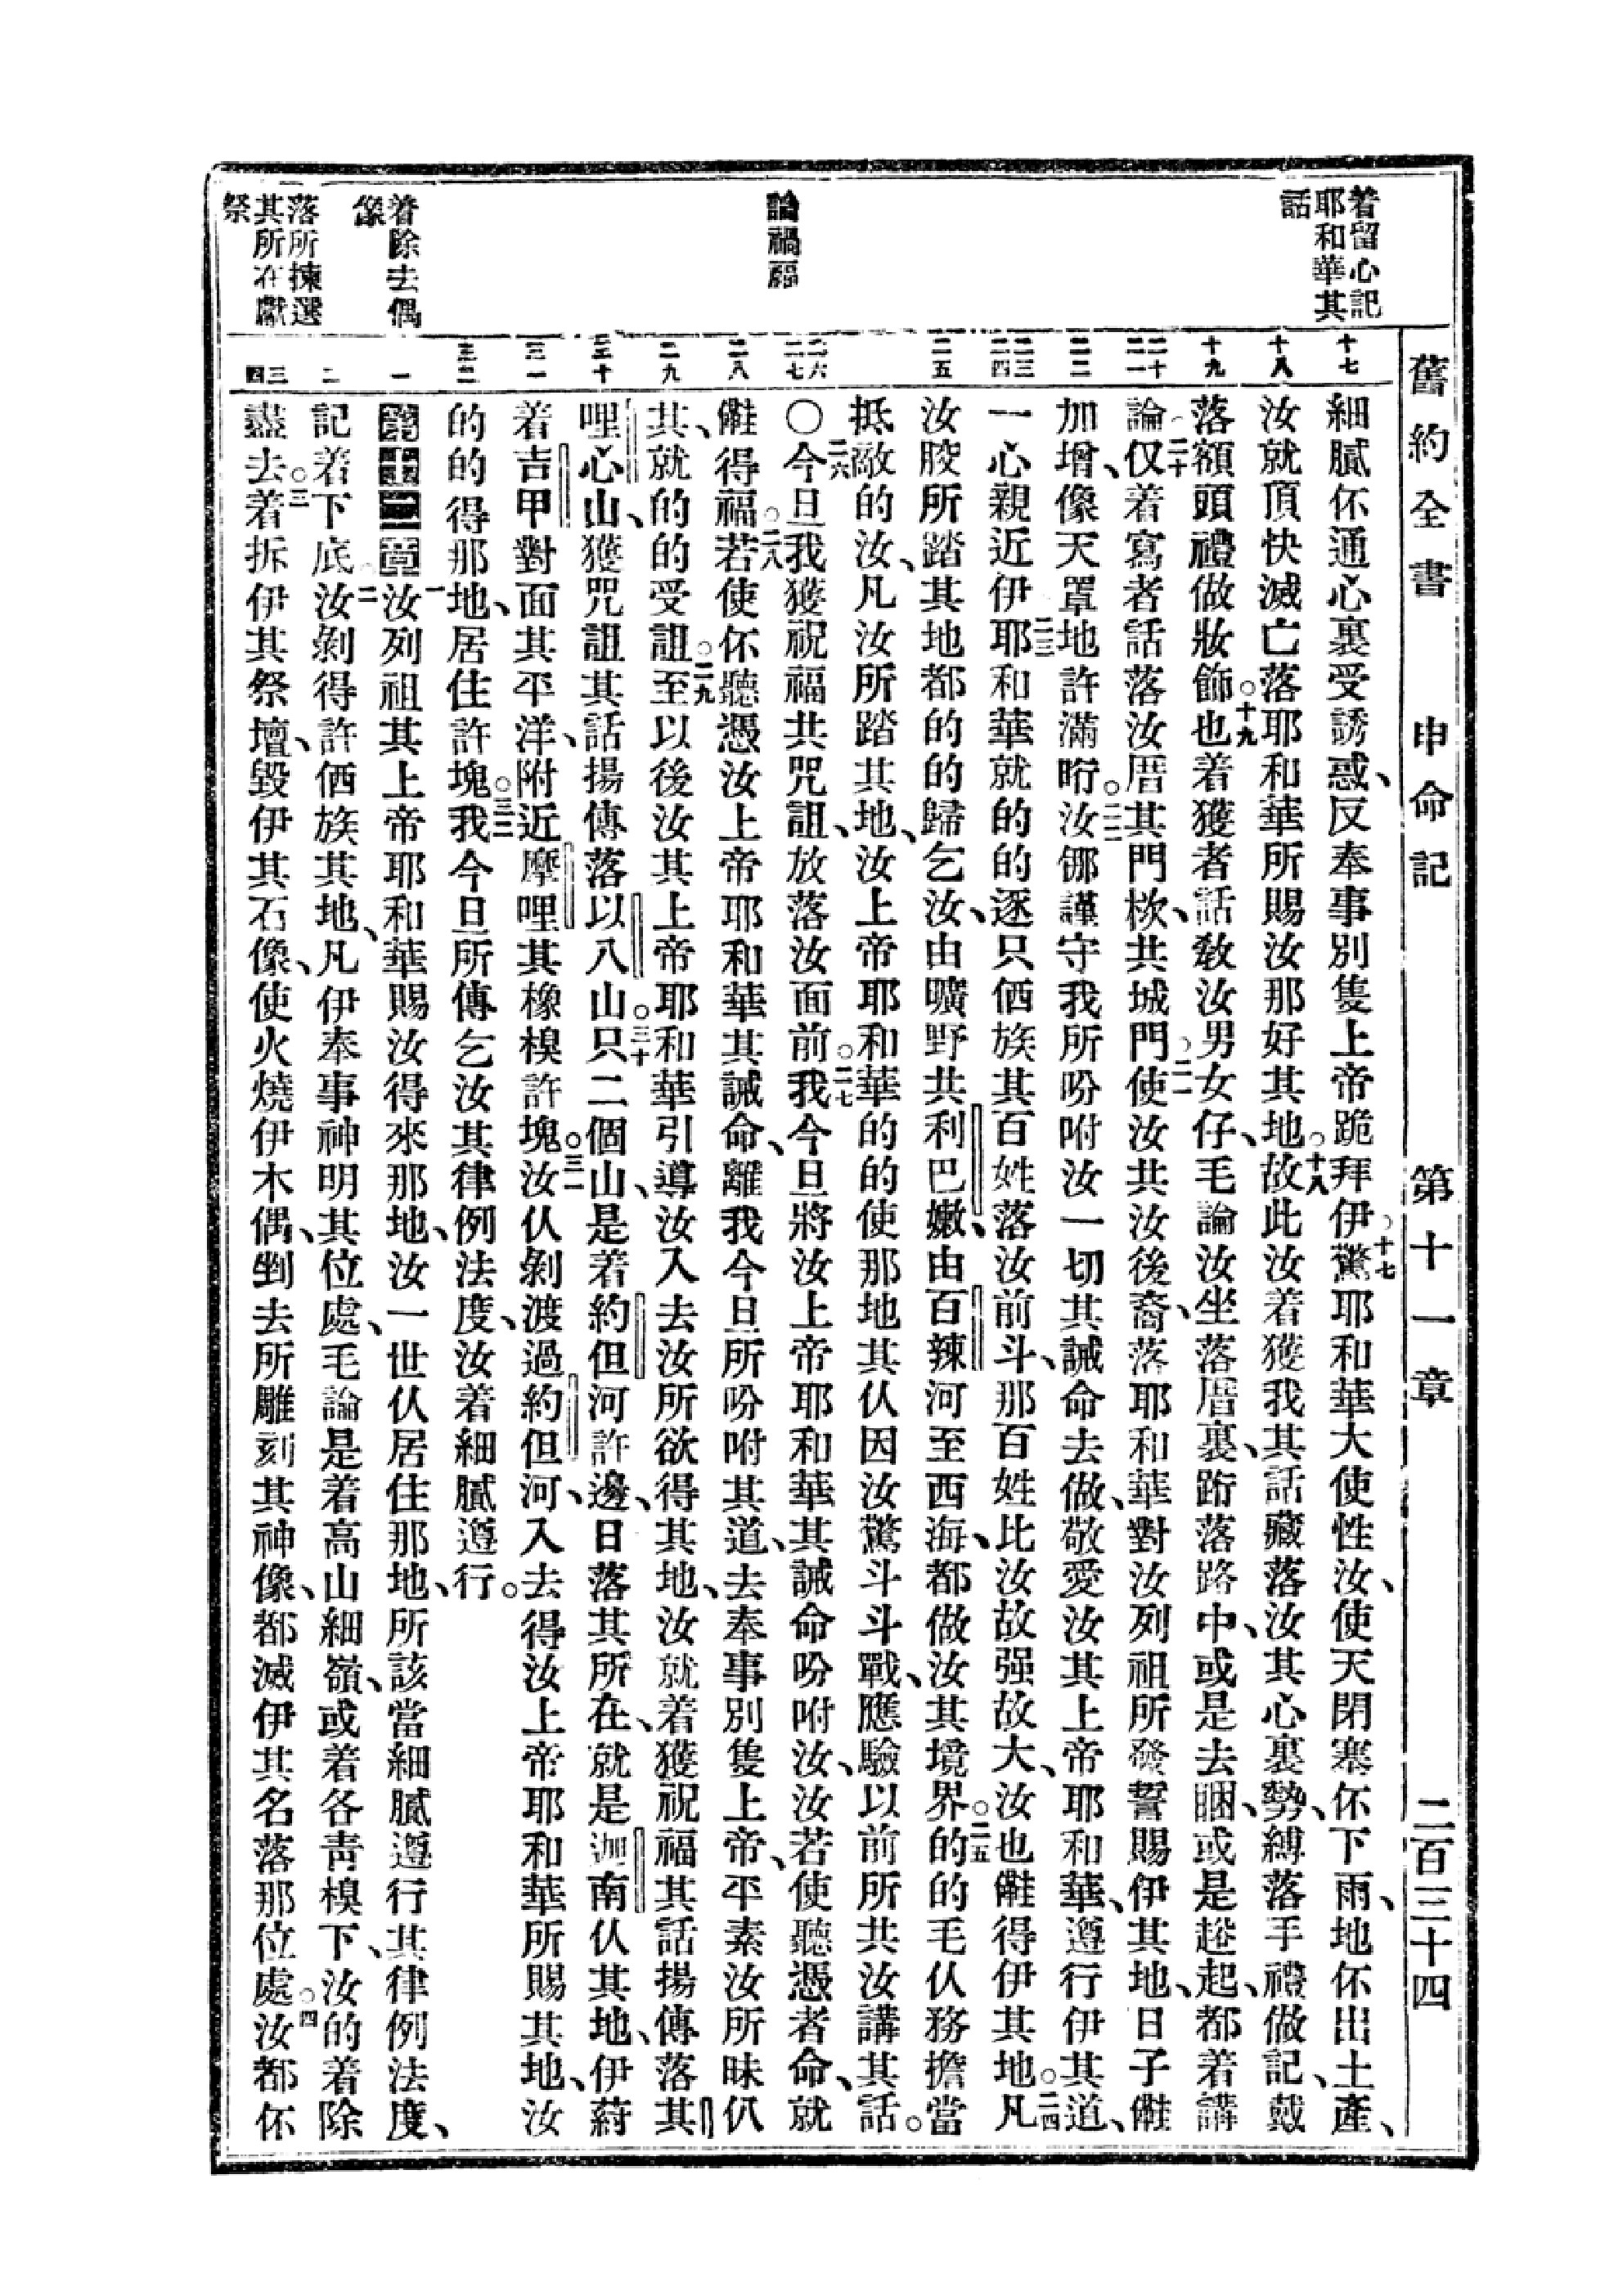 舊約全書 申命記 第十一章 二百三十四
着留心記
耶和華其
話
論禍福
着除去偶
像
落所揀選
其所在獻
祭
十七
十八
十九
二十
二一
二二
二三
二四
二五
二六
二七
二八
二九
三十
三一
三二
一
二
三
四
細膩伓通心裏受誘惑、反奉事別隻上帝跪拜伊。十七驚耶和華大使性汝、使天閉塞伓下雨、地伓出土產、
汝就頂快滅亡落耶和華所賜汝那好其地。十八故此汝着獲我其話藏落汝其心裏勢、縛落手禮做記、戴
落額頭禮做妝飾。十九也着獲者話敎汝男女仔、毛論汝坐落厝裏、跡落路中、或是去睏、或是起、都着講
論。二十仅着寫者話落汝厝其門栨、共城門。二一使汝共汝後裔、落耶和華對汝列祖所發誓賜伊其地、日子
加增、像天罩地許滿盺。二二汝謹守我所吩咐汝一切其誡命去做、敬愛汝其上帝耶和華、遵行伊其道、
一心親近伊。二三耶和華就的的逐只俩族其百姓落汝前斗、那百姓比汝故强故大、汝也得伊其地。二四凡
汝骹所踏其地都的的歸乞汝、由曠野共利巴嫩、由百辣河至西海、都做汝其境界。二五的的毛仈務擔當
抵敵的汝、凡汝所踏其地、汝上帝耶和華的的使那地其仈因汝驚斗斗戰、應驗以前所共汝講其話。
〇二六今旦我獲祝福共咒詛、放落汝面前。二七我今旦將汝上帝耶和華其誡命吩咐汝、汝若使聽憑者命、就
得福。二八若使伓聽憑汝上帝耶和華其誡命、離我今旦所吩咐其道、去奉事別隻上帝、平素汝所昧仈
其、就的的受詛。二九至以後汝其上帝耶和華引導汝入去汝所欲得其地、汝就着獲祝福其話揚傳落其
哩心山、獲咒詛其話揚傳落以八山。三十只二個山、是着約但河許邊、日落其所在、就是迦南仈其地、伊
着吉甲對面其平洋、附近摩哩其橡模許塊。三一汝仈剝渡過約但河、入去得汝上帝耶和華所賜其地、汝
的的得那地、居住許塊。三二我今旦所傳乞汝其律例法度、汝着細膩遵行。
第十二章一汝列祖其上帝耶和華賜汝得來那地、汝一世仈居住那地、所該當細膩遵行其律例法度、
記着下底。二汝剝得許俩族其地、凡伊奉事神明其位處、毛論是着高山細嶺、或着各靑模下、汝的着除
盡去。三着拆伊其祭壇、毀伊其石像、使火燒伊木偶、剉去所雕刻其神像、都滅伊其名落那位處。四汝都伓